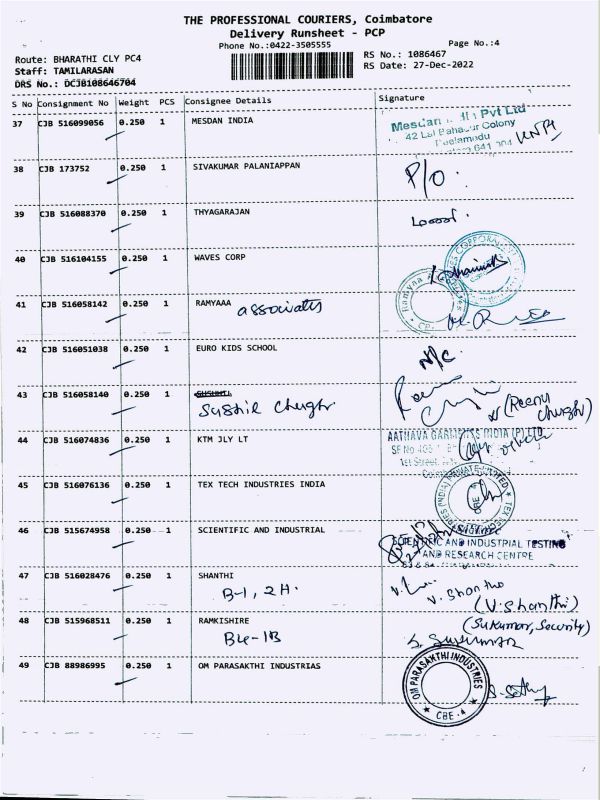 THE PROFESSIONAL COURIERS, Coimbatore
Delivery Runsheet - PCP
Phone No.:0422-3505555
Page No.:4
Route: BHARATHI CLY PC4
RS No.: 1086467
Staff: TAMILARASAN
RS Date: 27-Dec-2022
DRS No.: DCJB108646704
S No Consignment No Weight PCS Consignee Details Signature
37 CJB 516099056 0.250 1 MESDAN INDIA
Mesdan Pvt Ltd
42 Lal Bahadur Colony
Peelamedu
641 004
38 CJB 173752 0.250 1 SIVAKUMAR PALANIAPPAN P/O.
39 CJB 516088370 0.250 1 THYAGARAJAN
40 CJB 516104155 0.250 1 WAVES CORP
41 CJB 516058142 0.250 1 RAMYAAA associates
42 CJB 516051038 0.250 1 EURO KIDS SCHOOL N/C.
43 CJB 516058140 0.250 1 SUSHIL
Sushil Chugh
(Reenu
Chugh)
44 CJB 516074836 0.250 1 KTM JLY LT
AATHAVA GARMENTS INDIA (P) LTD
SF No.405
1st Street
45 CJB 516076136 0.250 1 TEX TECH INDUSTRIES INDIA
TEX TECH INDUSTRIES (INDIA) PRIVATE LIMITED
CBE
46 CJB 515674958 0.250 1 SCIENTIFIC AND INDUSTRIAL
SCIENTIFIC AND INDUSTRIAL TESTING
AND RESEARCH CENTRE
47 CJB 516028476 0.250 1 SHANTHI
B-1, 2H.
V. Shantho
(V.Shanthi)
48 CJB 515968511 0.250 1 RAMKISHIRE
(Sukumar, Security)
B4-1B
S. Sukumar
49 CJB 88986995 0.250 1 OM PARASAKTHI INDUSTRIAS
OM PARASAKTHI INDUSTRIES
CBE-4